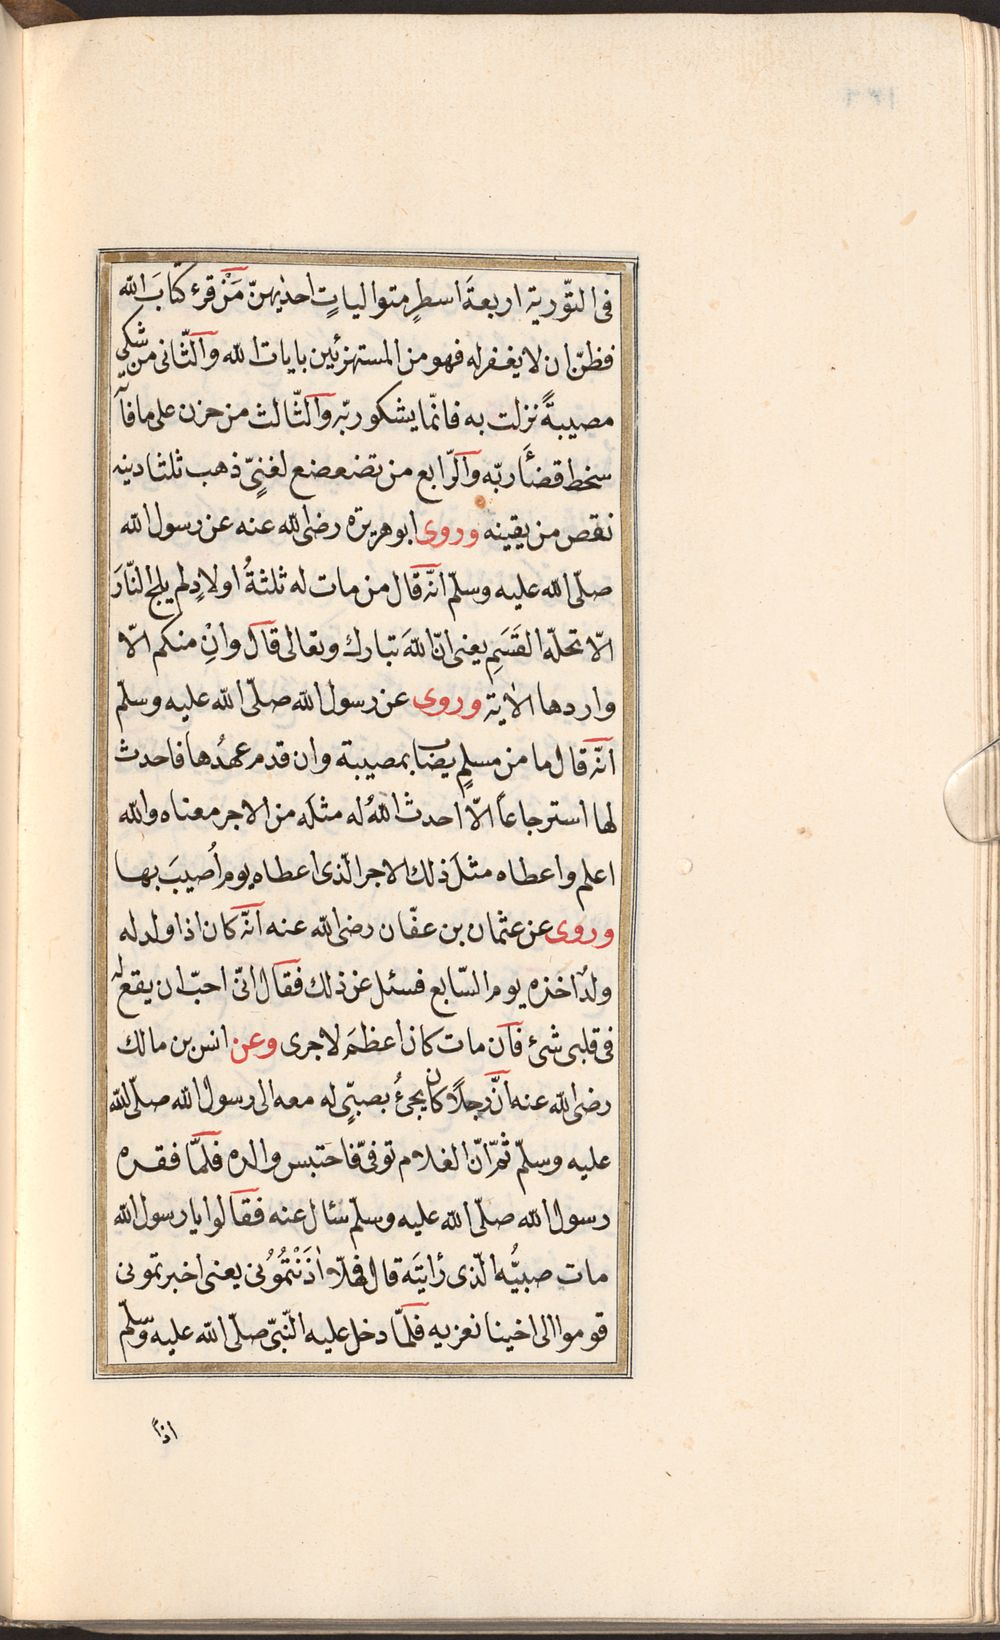 فى التّورية اربعةَ اسطرٍ متوالياتٍ احديهنّ مَنْ قرء كتابَ الله
فظنّ ان لا يغفر له فهو من المستهزئين بايات الله والثّانى من شكى
مصيبةً نزلت به فانّما يشكو ربّه والثّالث من حزن على ما فآ
سخط قضآءَ ربّه والرّابع من تضعضع لغنيٍّ ذهب ثلثا دينه
نقص من يقينه وروى ابو هريرة رضى الله عنه عن رسول الله
صلّى الله عليه وسلّم انّه قال من مات له ثلثةُ اولادٍ لم يلج النّارَ
الّا تحلّة القَسَمِ يعنى انّ اللهَ تبارك وتعالى قال وانْ منكم الّا
واردها الاٰية وروى عن رسول الله صلّى الله عليه وسلّم
انّه قال ما من مسلمٍ يصاب بمصيبة وان قدم عهدُها فاحدث
لها استرجاعاً الّا احدث اللهُ له مثله من الاجر معناه والله
اعلم واعطاه مثلَ ذلك الاجر الّذى اعطاه يوم اُصيبَ بها
وروى عن عثمان بن عفّان رضى الله عنه انّه كان اذا ولد له
ولدٌ اخذه يوم السّابع فسئل عن ذلك فقال انّى احبّ ان يقع له
فى قلبى شئ فان مات كان اعظمَ لاجرى وعن انس بن مالك
رضى الله عنه انَّ رجلاً كان يجئُ بصبىٍّ له معه الى رسول الله صلّى الله
عليه وسلّم ثمّ انّ الغلام توفّى فاحتبس والده فلمّا فقده
رسول الله صلّى الله عليه وسلّم سئال عنه فقالوا يا رسول الله
مات صبيُّه الّذى رُايتَه قال فهلّا اٰذَنْتُمُوْنى يعنى اخبرتمونى
قوموا الى اخينا نعزيه فلمّا دخل عليه النّبىّ صلّى الله عليه وسلّم
اذاً